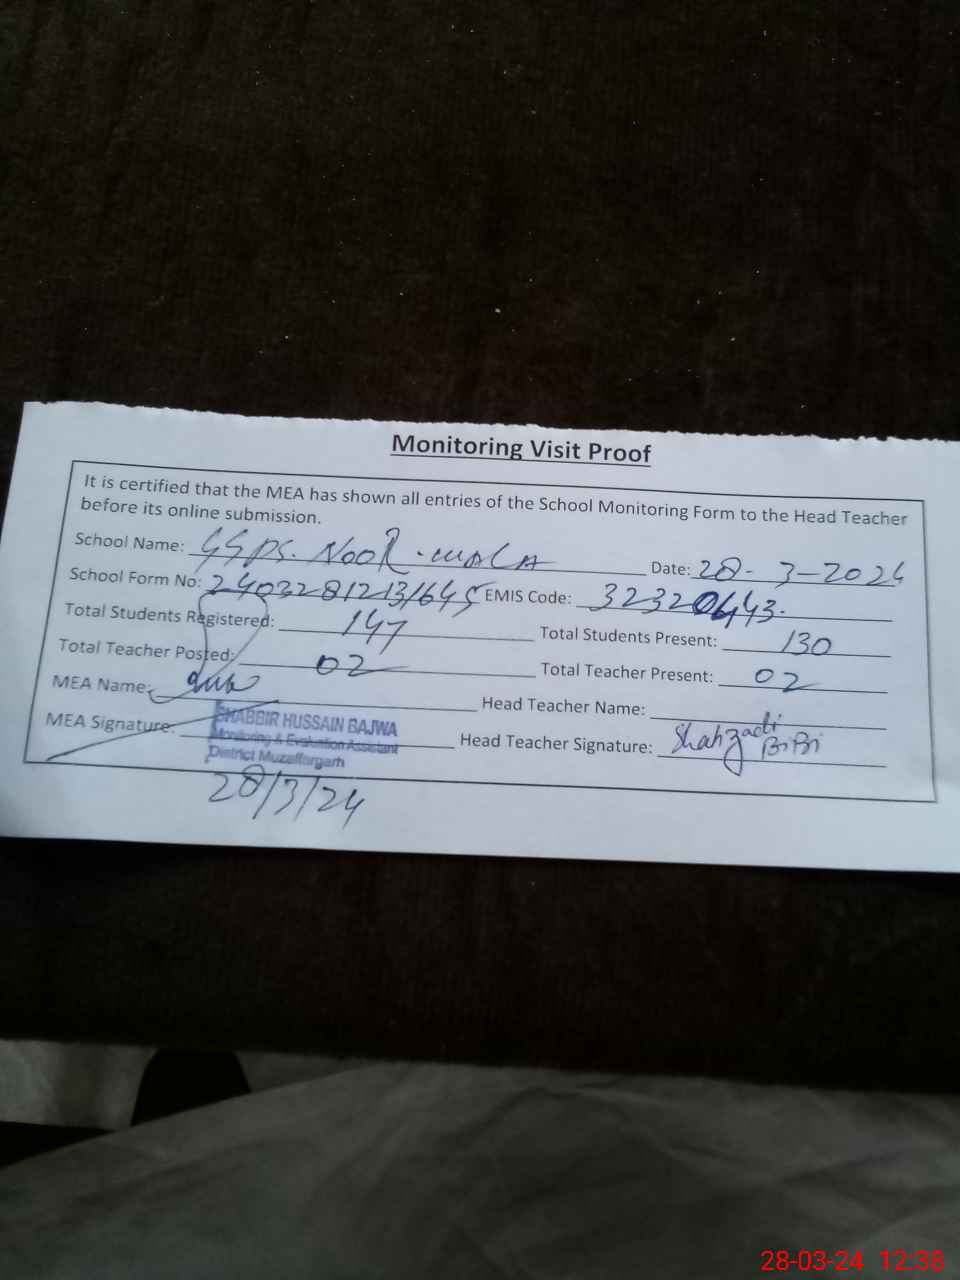 Monitoring Visit Proof
It is certified that the MEA has shown all entries of the School Monitoring Form to the Head Teacher
before its online submission.
School Name: GGPS. NOOR.WALA Date: 28-3-2024
School Form No: 24032812131645 EMIS Code: 32320443.
Total Students Registered: 147 Total Students Present: 130
Total Teacher Posted: 02 Total Teacher Present: 02
MEA Name: Head Teacher Name:
MEA Signature: Head Teacher Signature: Shahzadi BiBi
SHABBIR HUSSAIN BAJWA
Monitoring & Evaluation Assistant
District Muzaffargarh
28/3/24
28-03-24 12:38